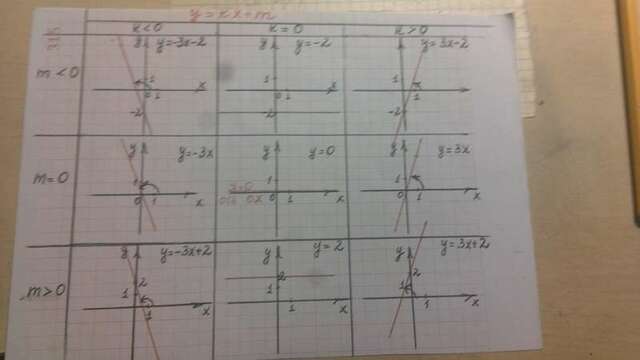 y = kx + m
k<0 k=0 k>0
m<0 y=-3x-2 y=-2 y=3x-2
y 1 x 0 1 -2
y 1 x 0 1 -2
y 1 x 1 -2
m=0 y=-3x y=0 y=3x
y 1 0 1 x
y 1 0 1 x
y 1 0 1 x
m>0 y=-3x+2 y=2 y=3x+2
y 2 1 1 x
y 2 1 1 x
y 2 1 1 x